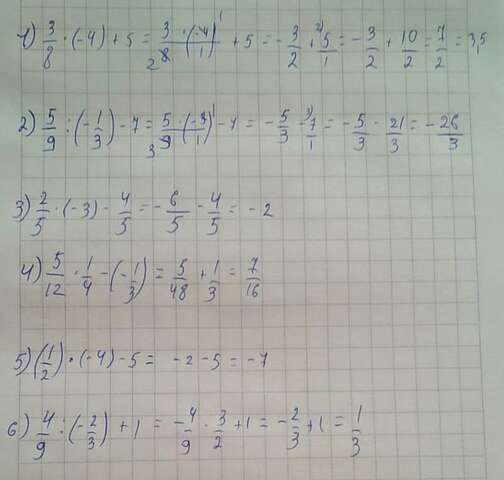 1) 3/8 · (-4) + 5 = 3 · (-4)¹ / ₂8 · 1 + 5 = - 3/2 + ²⁾5/1 = - 3/2 + 10/2 = 7/2 = 3,5
2) 5/9 : (-1/3) - 7 = 5 · (-3)¹ / ₃9 · 1 - 7 = - 5/3 - ³⁾7/1 = - 5/3 - 21/3 = - 26/3
3) 2/5 · (-3) - 4/5 = - 6/5 - 4/5 = - 2
4) 5/12 · 1/4 - (-1/3) = 5/48 + 1/3 = 7/16
5) (1/2) · (-4) - 5 = -2 - 5 = -7
6) 4/9 : (-2/3) + 1 = - 4/9 · 3/2 + 1 = - 2/3 + 1 = 1/3